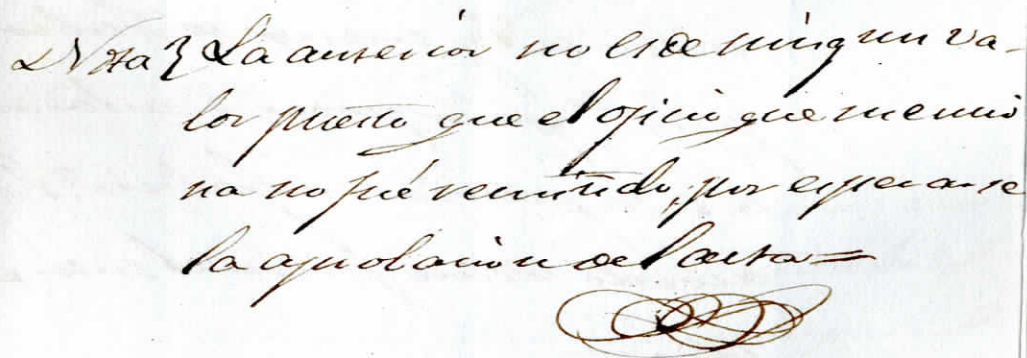 Nota} La anterior no es de ningun va-
lor puesto que el oficio que mencio
na no fué remitido, por esperarse
la aprobacion del acta=